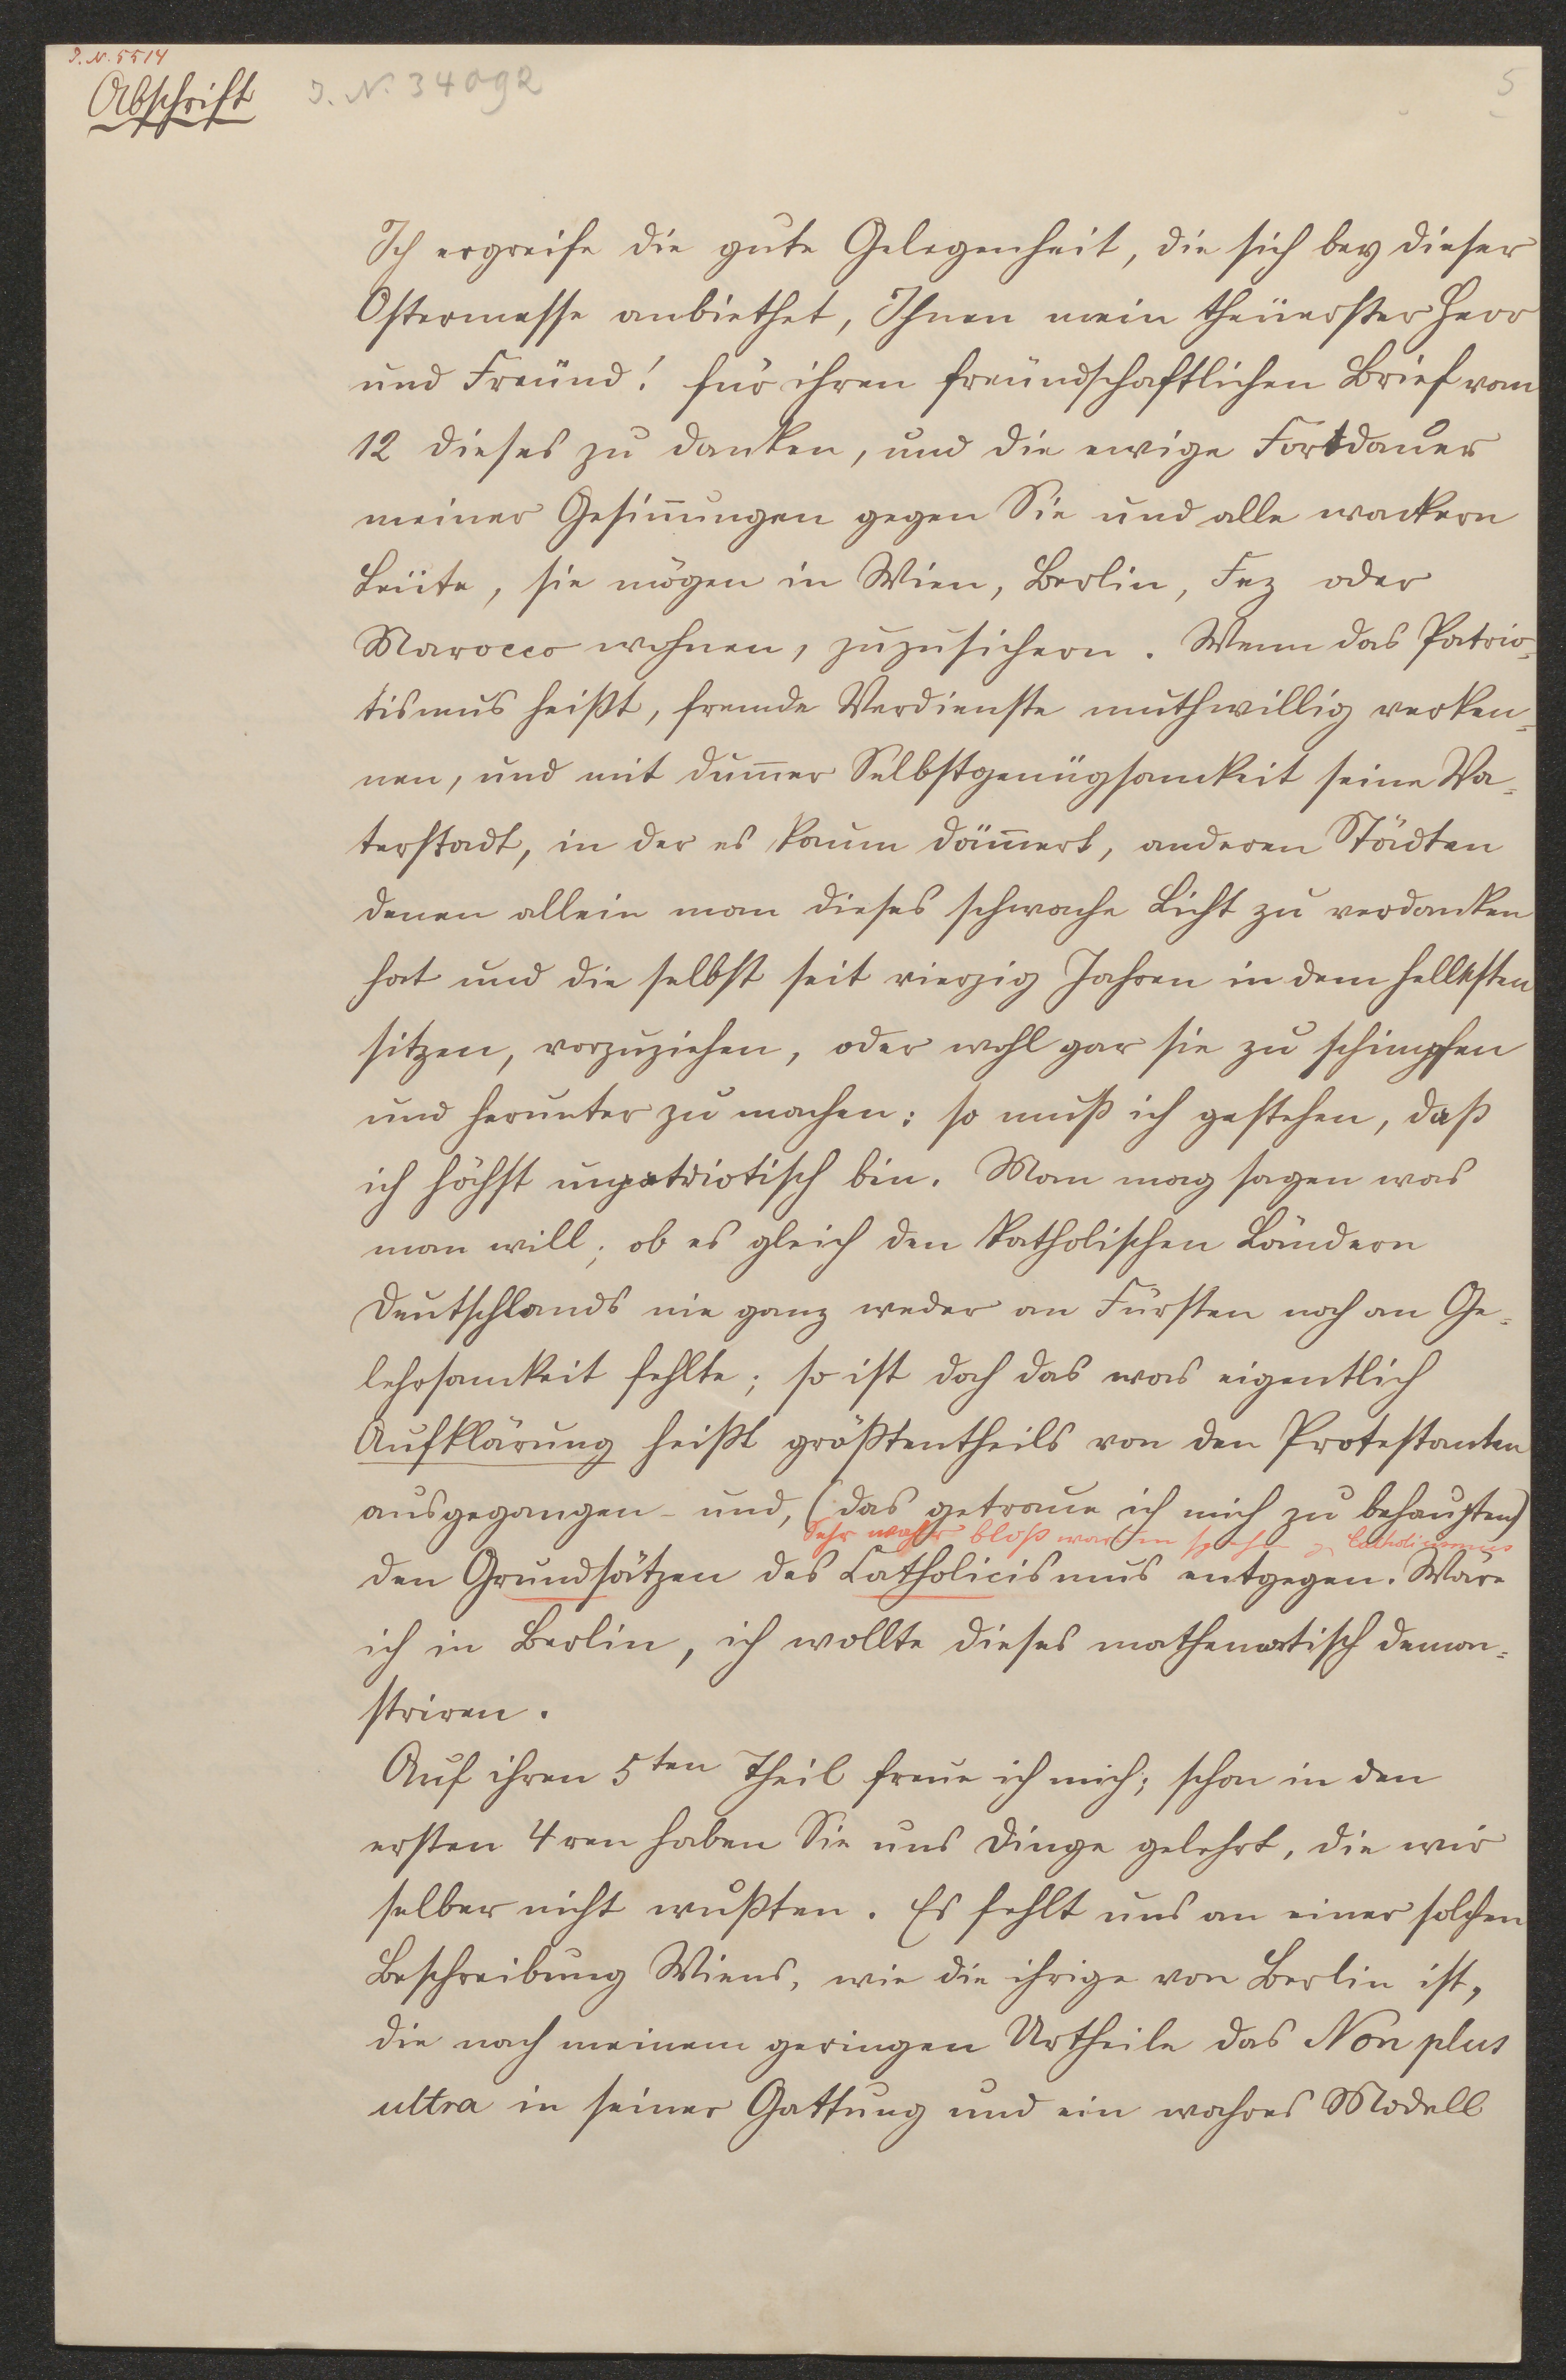 J. N. 5514
Abschrift
J. N. 34092
5
Ich ergreife die gute Gelegenheit, die sich bey dieser
Ostermesse anbiethet, Ihnen mein theüerster Herr
und Freünd! für ihren freündschaftlichen Brief vom
12 dieses zu danken, und die ewige Fortdauer
meiner Gesin̄ungen gegen Sie und alle wackern
Leüte, sie mögen in Wien, Berlin, Fez oder
Marocco wohnen, zuzusichern. Wenn das Patrio=
tismus heißt, fremde Verdienste muthwillig verken=
nen, und mit dum̄er Selbstgenügsamkeit seine Va=
terstadt, in der es kaum däm̄ert, anderen Städten
denen allein man dieses schwache Licht zu verdanken
hat und die selbst seit vierzig Jahren in dem hellsten
sitzen, vorzuziehen, oder wohl gar sie zu schimpfen
und herunter zu machen: so muß ich gestehen, daß
ich höchst unpatriotisch bin. Man mag sagen was
man will; ob es gleich den katholischen Ländern
Deutschlands nie ganz weder an Fürsten noch an Ge=
lehrsamkeit fehlte; so ist doch das was eigentlich
Aufklärung heißt größtentheils von den Protestanten
ausgegangen und, (das getraue ich mich zu behaupten)
Sehr wahr bloß Catholicismus
den Grundsätzen des Catholicismus entgegen. Wäre
ich in Berlin, ich wollte dieses mathematisch demon=
striren.
Auf ihren 5ten Theil freue ich mich; schon in den
ersten 4ren haben Sie uns Dinge gelehrt, die wir
selber nicht wußten. Es fehlt uns an einer solchen
Beschreibung Wiens, wie die ihrige von Berlin ist,
die nach meinem geringen Urtheile das Non plus
ultra in seiner Gattung und ein wahres Modell